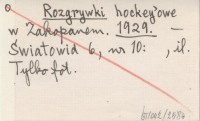 Rozgrywki hockey'owe
w Zakopanem. 1929. –
Światowid 6, nr 10: , il.
Tylko fot.